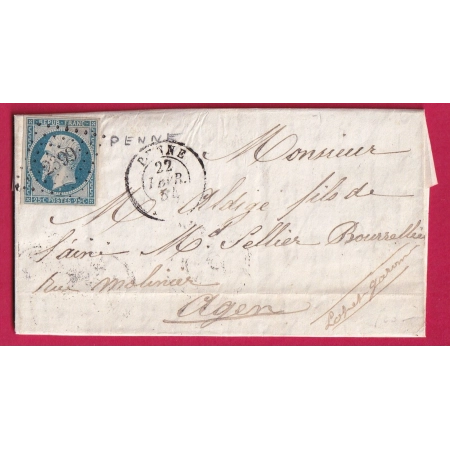 REPUB. FRANC.
2399
25 C. POSTES 25 C.
PENNE
PENNE
22
FEVR.
54
Monsieur
Mr Aldigé fils de
l'ainé Md. Sellier Bourrellier
rue Molinier
Agen
Lot-et-garonne